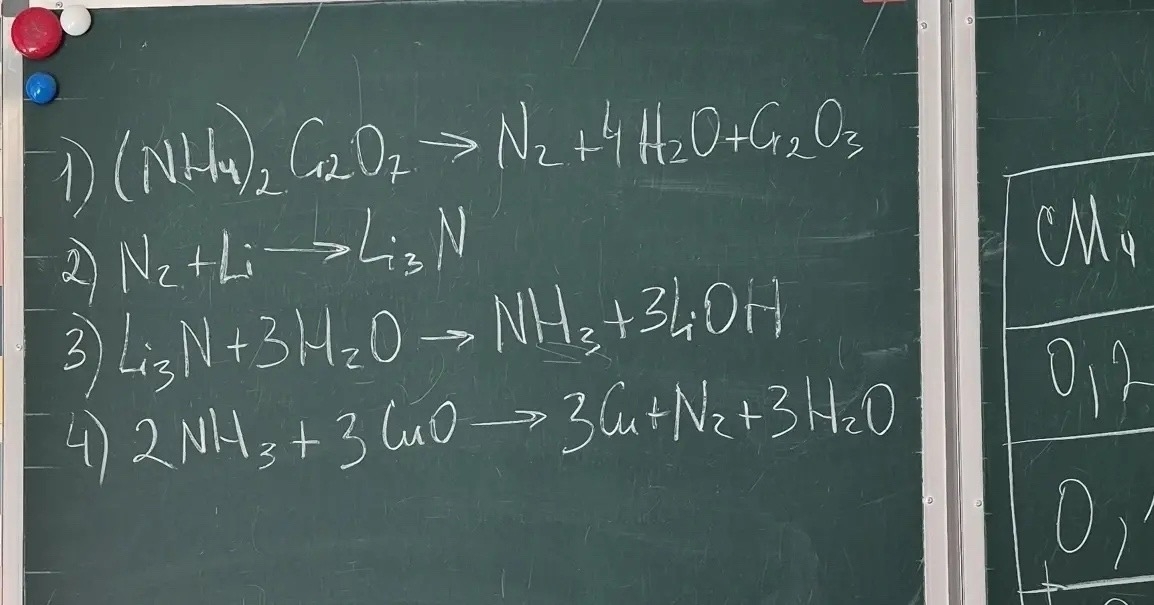 1) (NH₄)₂Cr₂O₇ → N₂ + 4H₂O + Cr₂O₃
2) N₂ + Li → Li₃N
3) Li₃N + 3H₂O → NH₃ + 3LiOH
4) 2NH₃ + 3CuO → 3Cu + N₂ + 3H₂O
0,2
0,